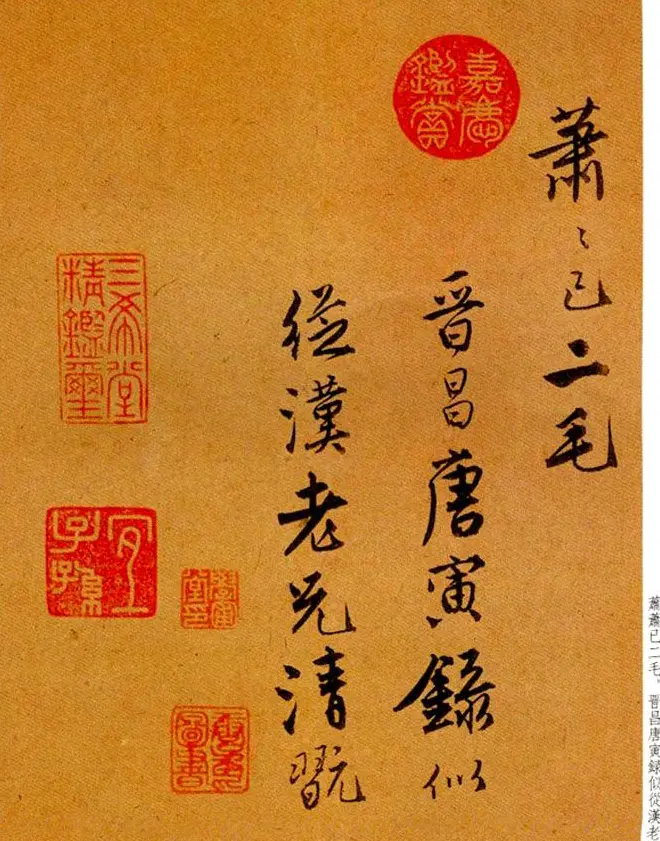 蕭〻已二毛
晉昌唐寅錄似
從漢老兄清翫
嘉慶鑑賞
三希堂精鑑璽
宜子孫
學圃堂印
唐寅圖書
蕭蕭已二毛。晉昌唐寅録似從漢老